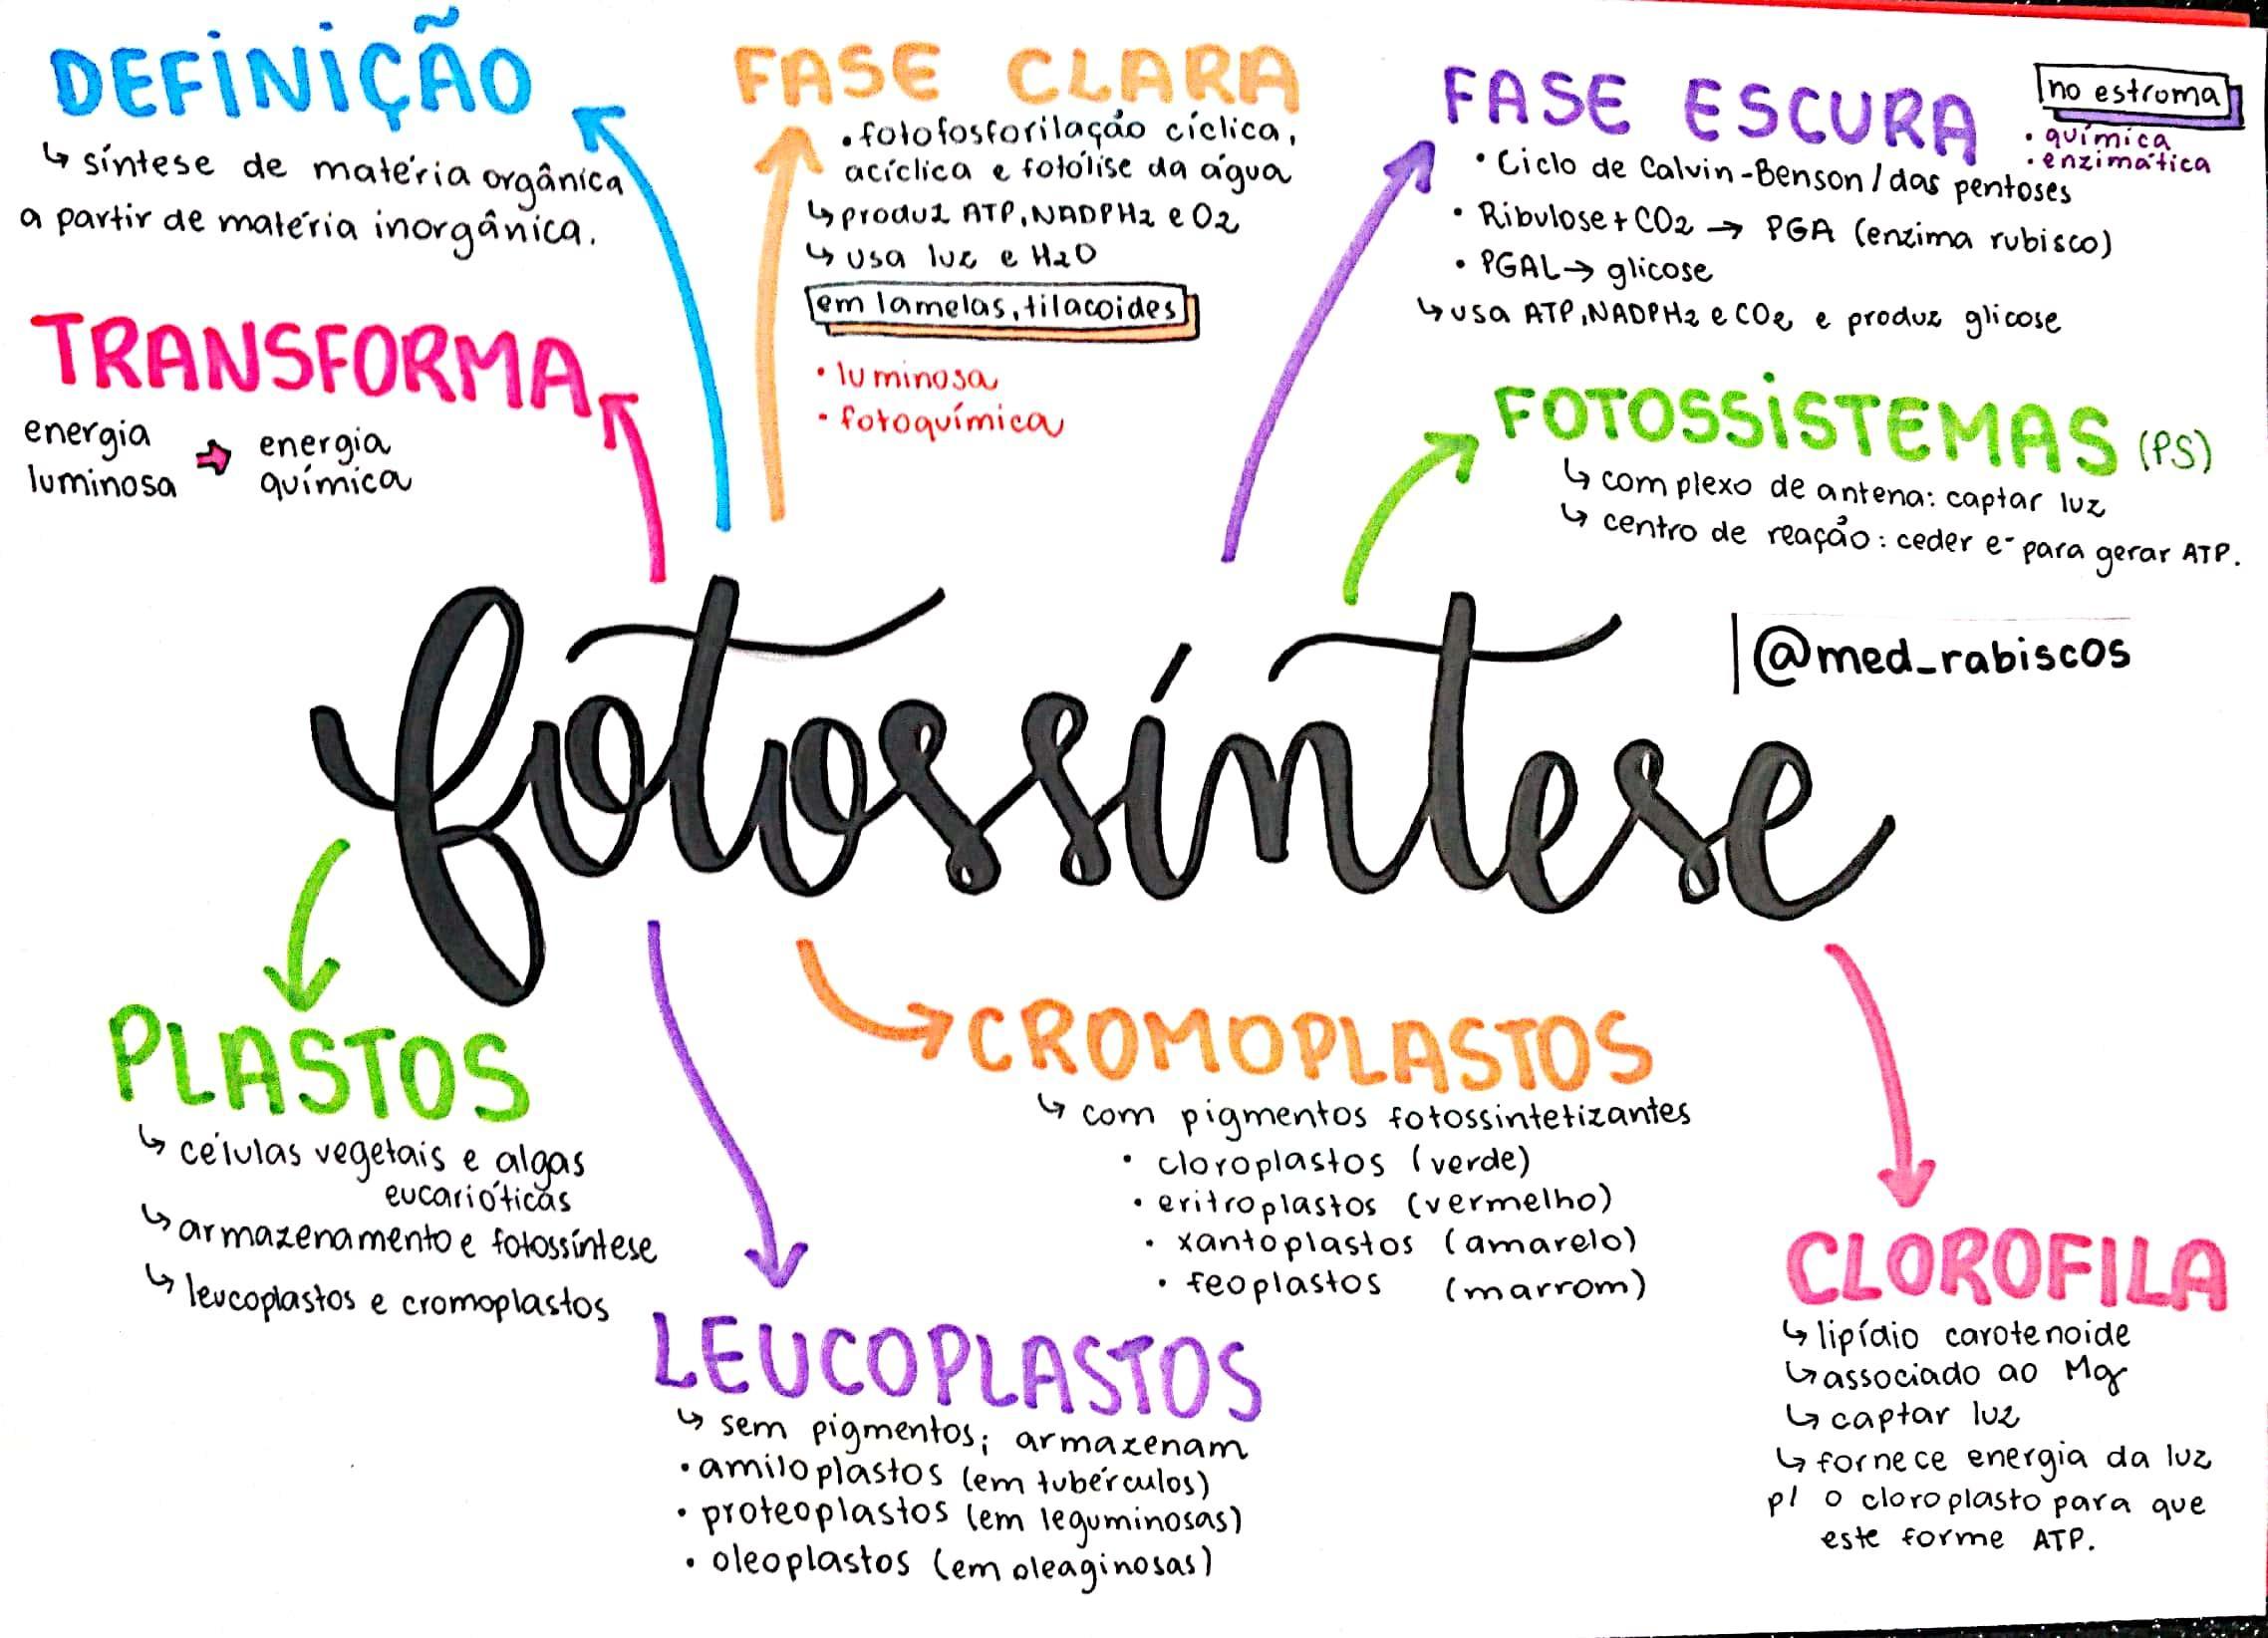 DEFINIÇÃO
↳ síntese de matéria orgânica
a partir de matéria inorgânica.
TRANSFORMA
energia luminosa → energia química
FASE CLARA
• fotofosforilação cíclica,
acíclica e fotólise da água
↳ produz ATP, NADPH2 e O2
↳ usa luz e H2O
em lamelas, tilacoides
• luminosa
- fotoquímica
FASE ESCURA
no estroma
• química
• enzimática
• Ciclo de Calvin-Benson/das pentoses
• Ribulose + CO2 → PGA (enzima rubisco)
• PGAL → glicose
↳ usa ATP, NADPH2 e CO2, e produz glicose
FOTOSSISTEMAS (PS)
↳ complexo de antena: captar luz
↳ centro de reação: ceder e- para gerar ATP.
fotossíntese
|@med_rabiscos
PLASTOS
↳ células vegetais e algas
eucarióticas
↳ armazenamento e fotossíntese
↳ leucoplastos e cromoplastos
LEUCOPLASTOS
↳ sem pigmentos; armazenam
• amiloplastos (em tubérculos)
• proteoplastos (em leguminosas)
• oleoplastos (em oleaginosas)
CROMOPLASTOS
↳ com pigmentos fotossintetizantes
• cloroplastos (verde)
• eritroplastos (vermelho)
• xantoplastos (amarelo)
• feoplastos (marrom)
CLOROFILA
↳ lipídio carotenoide
↳ associado ao Mg
↳ captar luz
↳ fornece energia da luz
p/ o cloroplasto para que
este forme ATP.